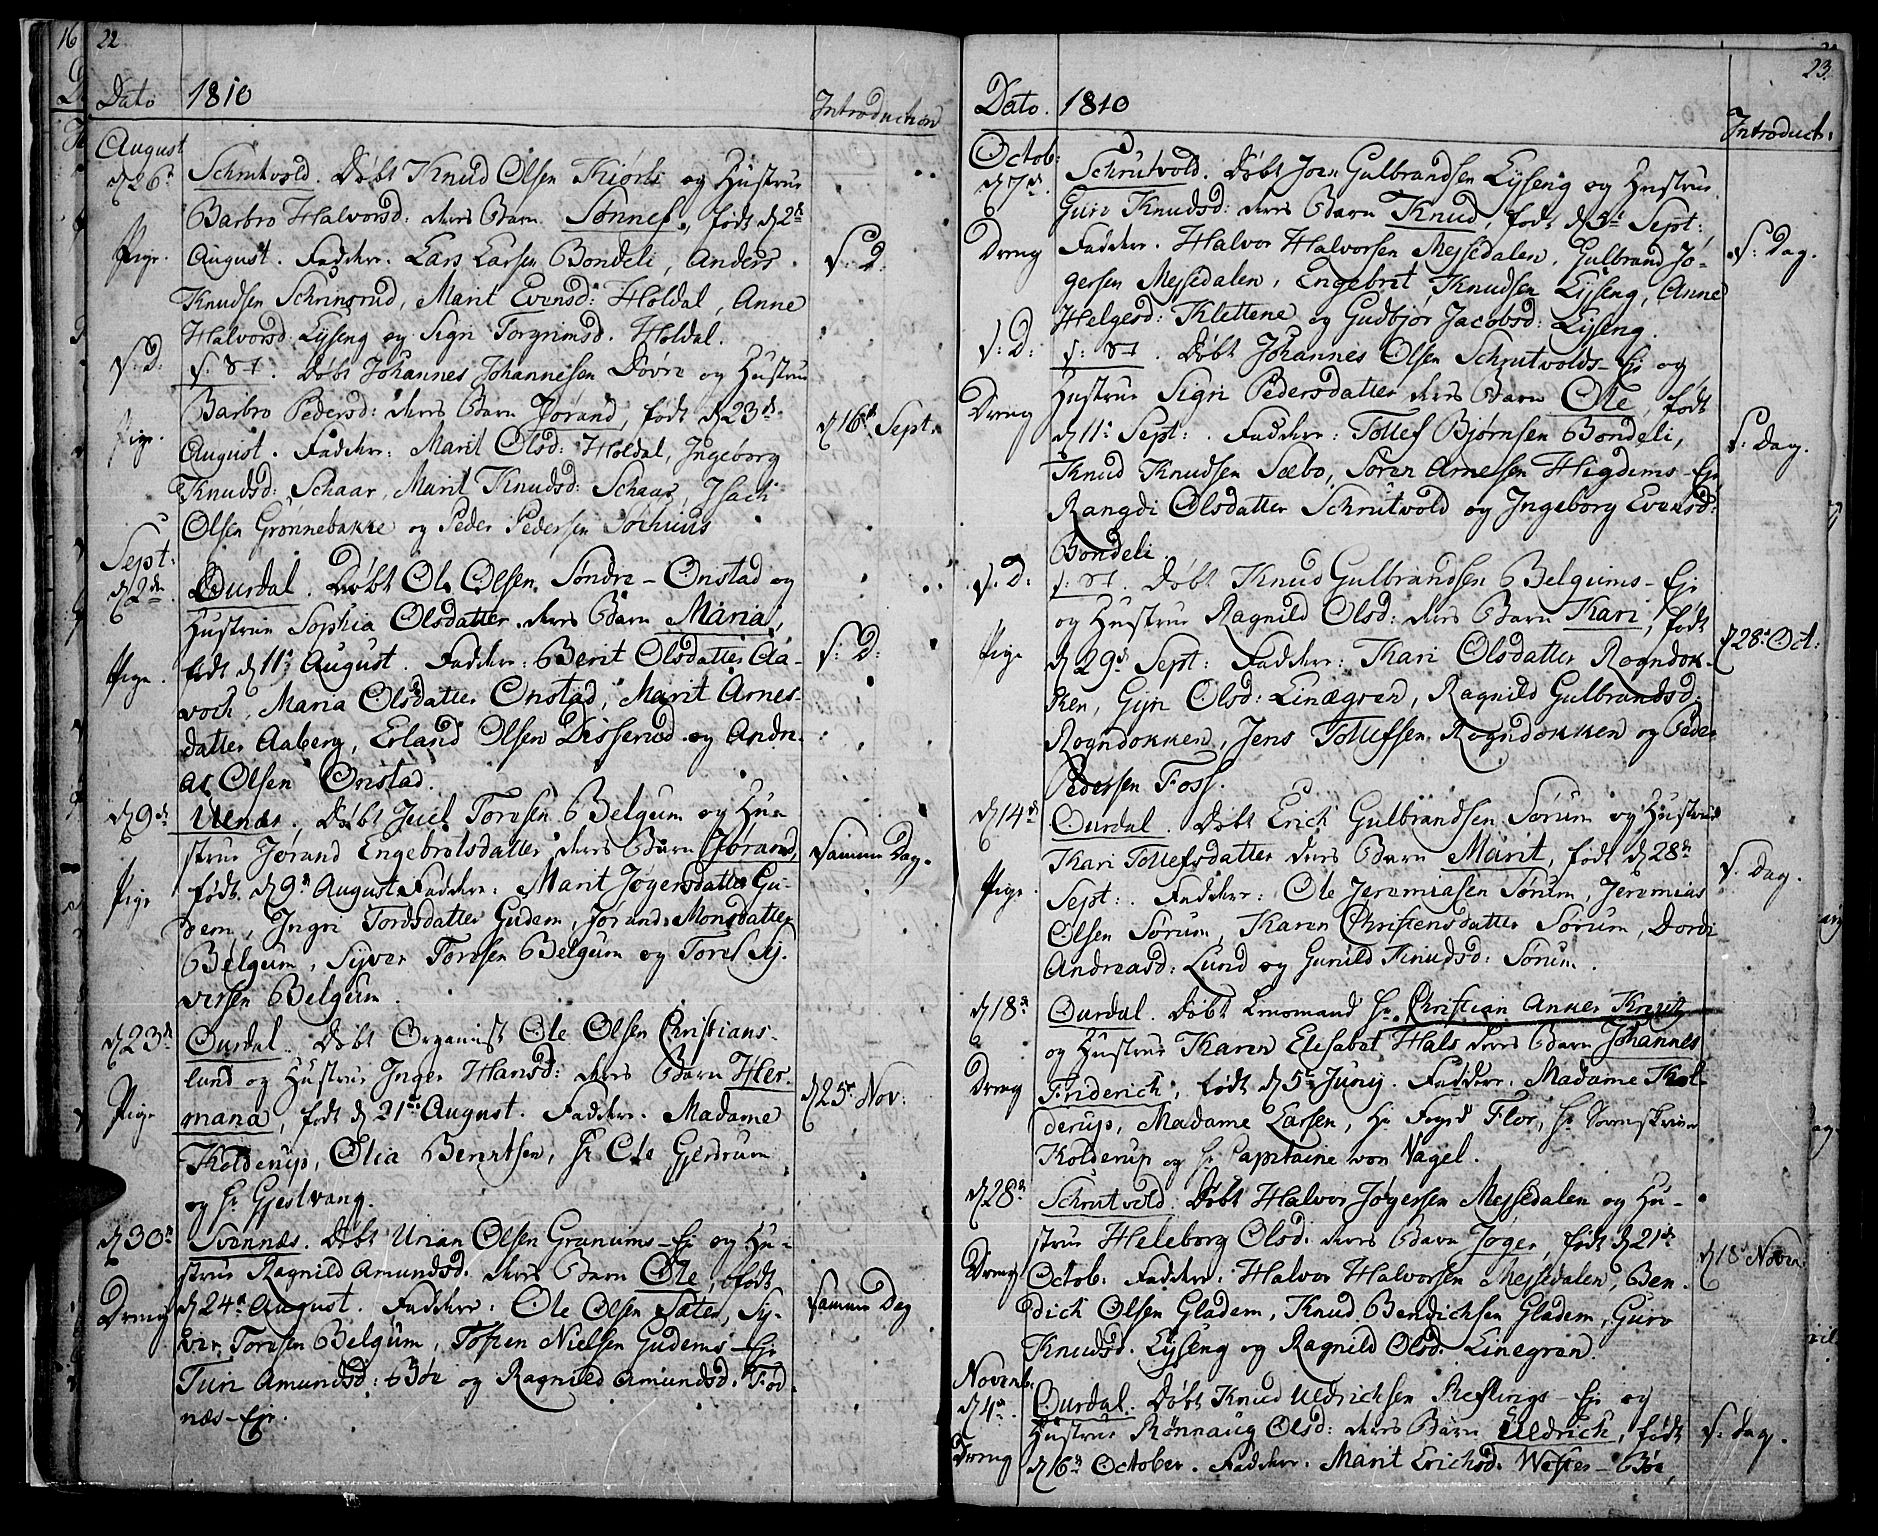 22
Dato 1810 Introduction
August
d 26de Schrutvold. Døbt Knud Olsen Kiørli og Hustrue
Barbro Halvorsd: deres Barn Sønnef, født d 2de
Pige. August. Fadder. Lars Larsen Bondeli, Anders S: D:
Knudsen Schrinsrud, Marit Evensd: Holdal, Anne
Halvorsd. Lyseng og Sigri Torgrimsd. Holdal.
S: D: S: St. Døbt Johannes Johannesen Dovre og Hustrue
Barbro Pedersd: deres Barn Jørand, født d 23de d 16de Sept.
Pige. August. Fadder: Marit Olsd: Holdal, Ingeborg
Knudsd: Schaar, Marit Knudsd: Schaar, Isach
Olsen Grønnebakke og Peder Pedersen
Sept:
d 2de Ourdal. Døbt Ole Olsen Søndre-Onstad og
Hustrue Sophia Olsdatter deres Barn Maria,
Pige. født d 11te August. Fadder: Berit Olsdatter Aa- S: D:
voch, Maria Olsdatter Onstad, Marit Arnes-
datter Aaberg, Erland Olsen Disserud og Andre-
as Olsen Onstad.
d 9de Ulnæs. Døbt Juel Toresen Belgum og Hu-
strue Jørand Engebretsdatter deres Barn Jørand, Samme Dag.
Pige født d 9de August. Fadder: Marit Jøgersdatter Gu-
dem, Ingri Tordsdatter Gudem, Jørand Monsdatter
Belgum, Syver Toresen Belgum og Tores Sy-
versen Belgum.
d 23de Ourdal. Døbt Organist Ole Olsen Christians-
lund og Hustrue Inger Hansd: deres Barn Her- d 25de Nov:
Pige mana, født d 21de August. Fadder. Madame
Kolderup, Olia Berntsen, Hr Ole Gjerdrum
og Hr Gjestvang.
d 30te Svennæs. Døbt Urian Olsen Granums-Eje og Hu-
strue Ragnild Amundsd. deres Barn Ole, født
Dreng d 24de August. Fadder: Ole Olsen Sater, Sy- Samme Dag
ver Toresen Belgum, Tosten Nielsen Gudems-Eje
Turi Amundsd: Bøe og Ragnild Amundsd. Fod-
næs-Eje.
23.
Dato. 1810 Introduct:
Octob:
d 7de Schrutvold. Døbt Joen Gulbrandsen Lyseng og Hustrue
Guri Knudsd: deres Barn Knud, født d 5te Sept:,
Dreng Fadder. Halvor Halvorsen Messedalen, Gulbrand Jø- S: Dag.
gersen Messedalen, Engebret Knudsen Lyseng, Anne
Helgesd: Klettene og Gudbjør Jacobsd: Lyseng.
S: D: S: St. Døbt Johannes Olsen Schrutvolds-Eje og
Dreng Hustrue Sigri Pedersdatter deres Barn Ole, født
d 11te Sept: . Fadder: Tollef Bjørnsen Bondeli, S: Dag.
Knud Knudsen Sæbo, Søren Arnesen Higdems-Eje
Rangdi Olsdatter Schrutvold og Ingeborg Evensd:
Bondeli.
S: D: S: St. Døbt Knud Gulbrandsen Belgums-Eje
og Hustrue Ragnild Olsd: deres Barn Kari, født d 28de Oct:
Pige d 29de Sept: Fadder: Kari Olsdatter Rogndok-
ken, Gyri Olsd: Linægren, Ragnild Gulbrandsd:
Rogndokken, Jens Tollefsen Rogndokken og Peder
Pedersen Foss.
d 14de Ourdal. Døbt Erich Gulbrandsen Sørum og Hustrue
Kari Tollefsdatter deres Barn Marit, født d 28de S: Dag.
Pige. Sept: . Fadder: Ole Jeremiasen Sørum, Jeremias
Olsen Sørum, Karen Christensdatter Sørum, Dordi
Andreasd: Lund og Gunild Knudsd: Sørum.
d 18de Ourdal. Døbt Lensmand Hr. Christian Anker Kraft
og Hustrue Karen Elisabet Hals deres Barn Johannes
Dreng Friderich, født d 5te Juny. Fadder. Madame Kol-
derup, Madame Larsen, Hr Foged Flor, Hr Sorenskriver
Kolderup og Hr Capitaine von Nagel.
d 28de Schrutvold. Døbt Halvor Jøgersen Messedalen og Hu-
strue Heleborg Olsd: deres Barn Jøger, født d 21de d 18de Novem:
Dreng Octob. Fadder: Halvor Halvorsen Messedalen, Ben-
dich Olsen Gladem, Knud Bendichsen Gladem, Guro
Knudsd. Lyseng og Ragnild Olsd. Linegran.
Novemb.
d 4de Ourdal. Døbt Knud Uldrichsen Reflings-Eje og
Dreng Hustrue Rønnaug Olsd: deres Barn Uldrich, født S: Dag.
d 16de October. Fadder. Marit Erichsd. Wester-Bøe,